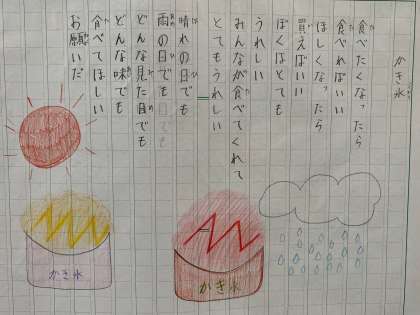 かき氷
食べたくなったら
食べればいい
ほしくなったら
買えばいい
ぼくはとても
うれしい
みんなが食べてくれて
とてもうれしい
晴れの日でも
雨の日でも
どんな見た目でも
どんな味でも
食べてほしい
お願いだ
かき氷
かき氷